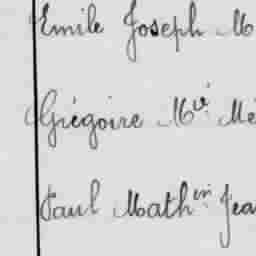 Emile Joseph M
Grégoire Mcé Mé
Paul Mathin Jea